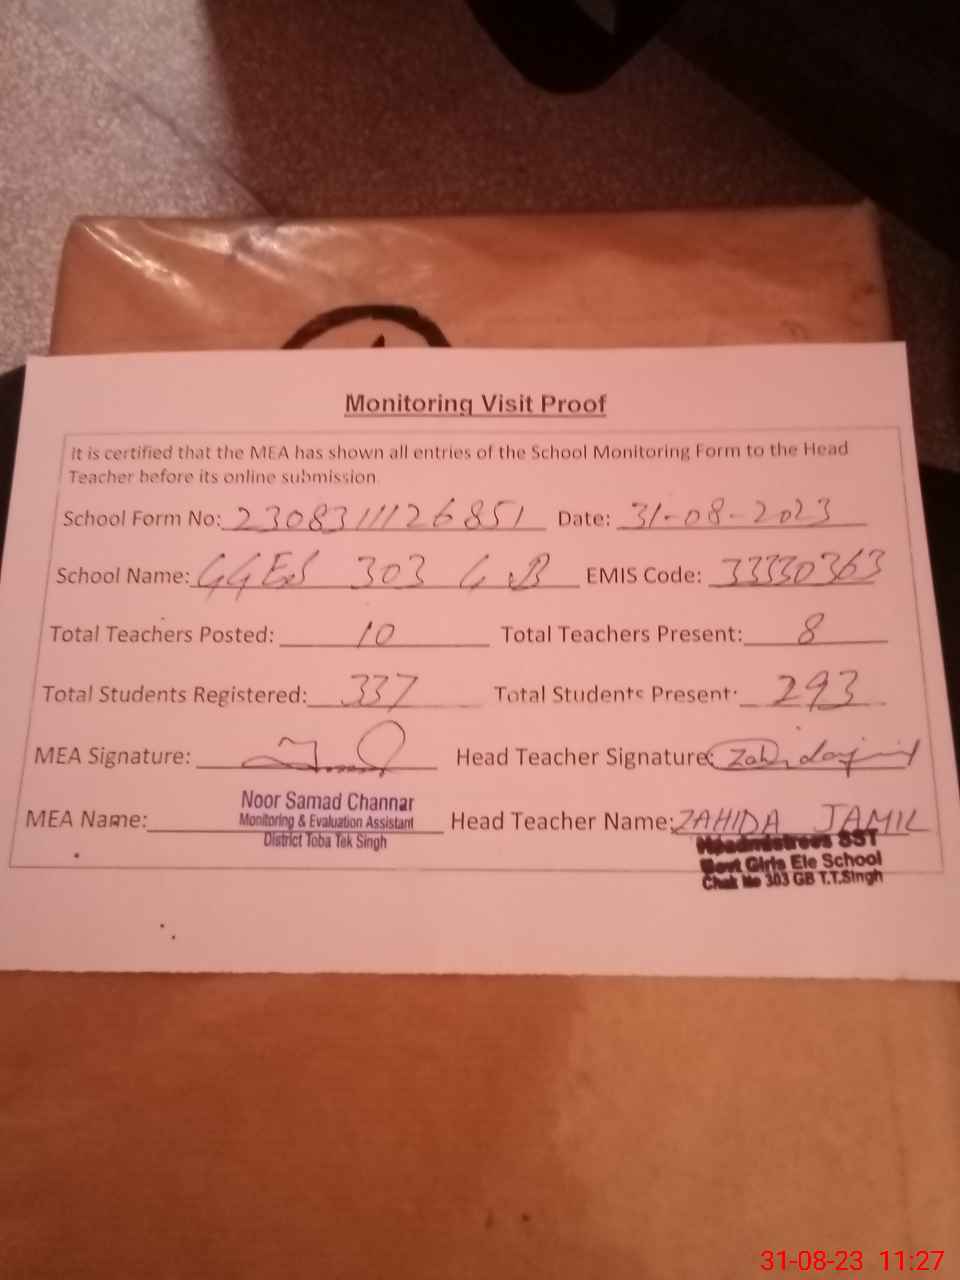 Monitoring Visit Proof
It is certified that the MEA has shown all entries of the School Monitoring Form to the Head
Teacher before its online submission
School Form No: 230831111126851 Date: 31-08-2023
School Name: GGES 303 G.B EMIS Code: 33330363
Total Teachers Posted: 10 Total Teachers Present: 8
Total Students Registered: 337 Total Students Present: 293
MEA Signature: Head Teacher Signature:
MEA Name: Noor Samad Channar Head Teacher Name: ZAHIDA JAMIL
Monitoring & Evaluation Assistant
District Toba Tek Singh
Headmistress SST
Govt Girls Ele School
Chak No 303 GB T.T.Singh
31-08-23 11:27